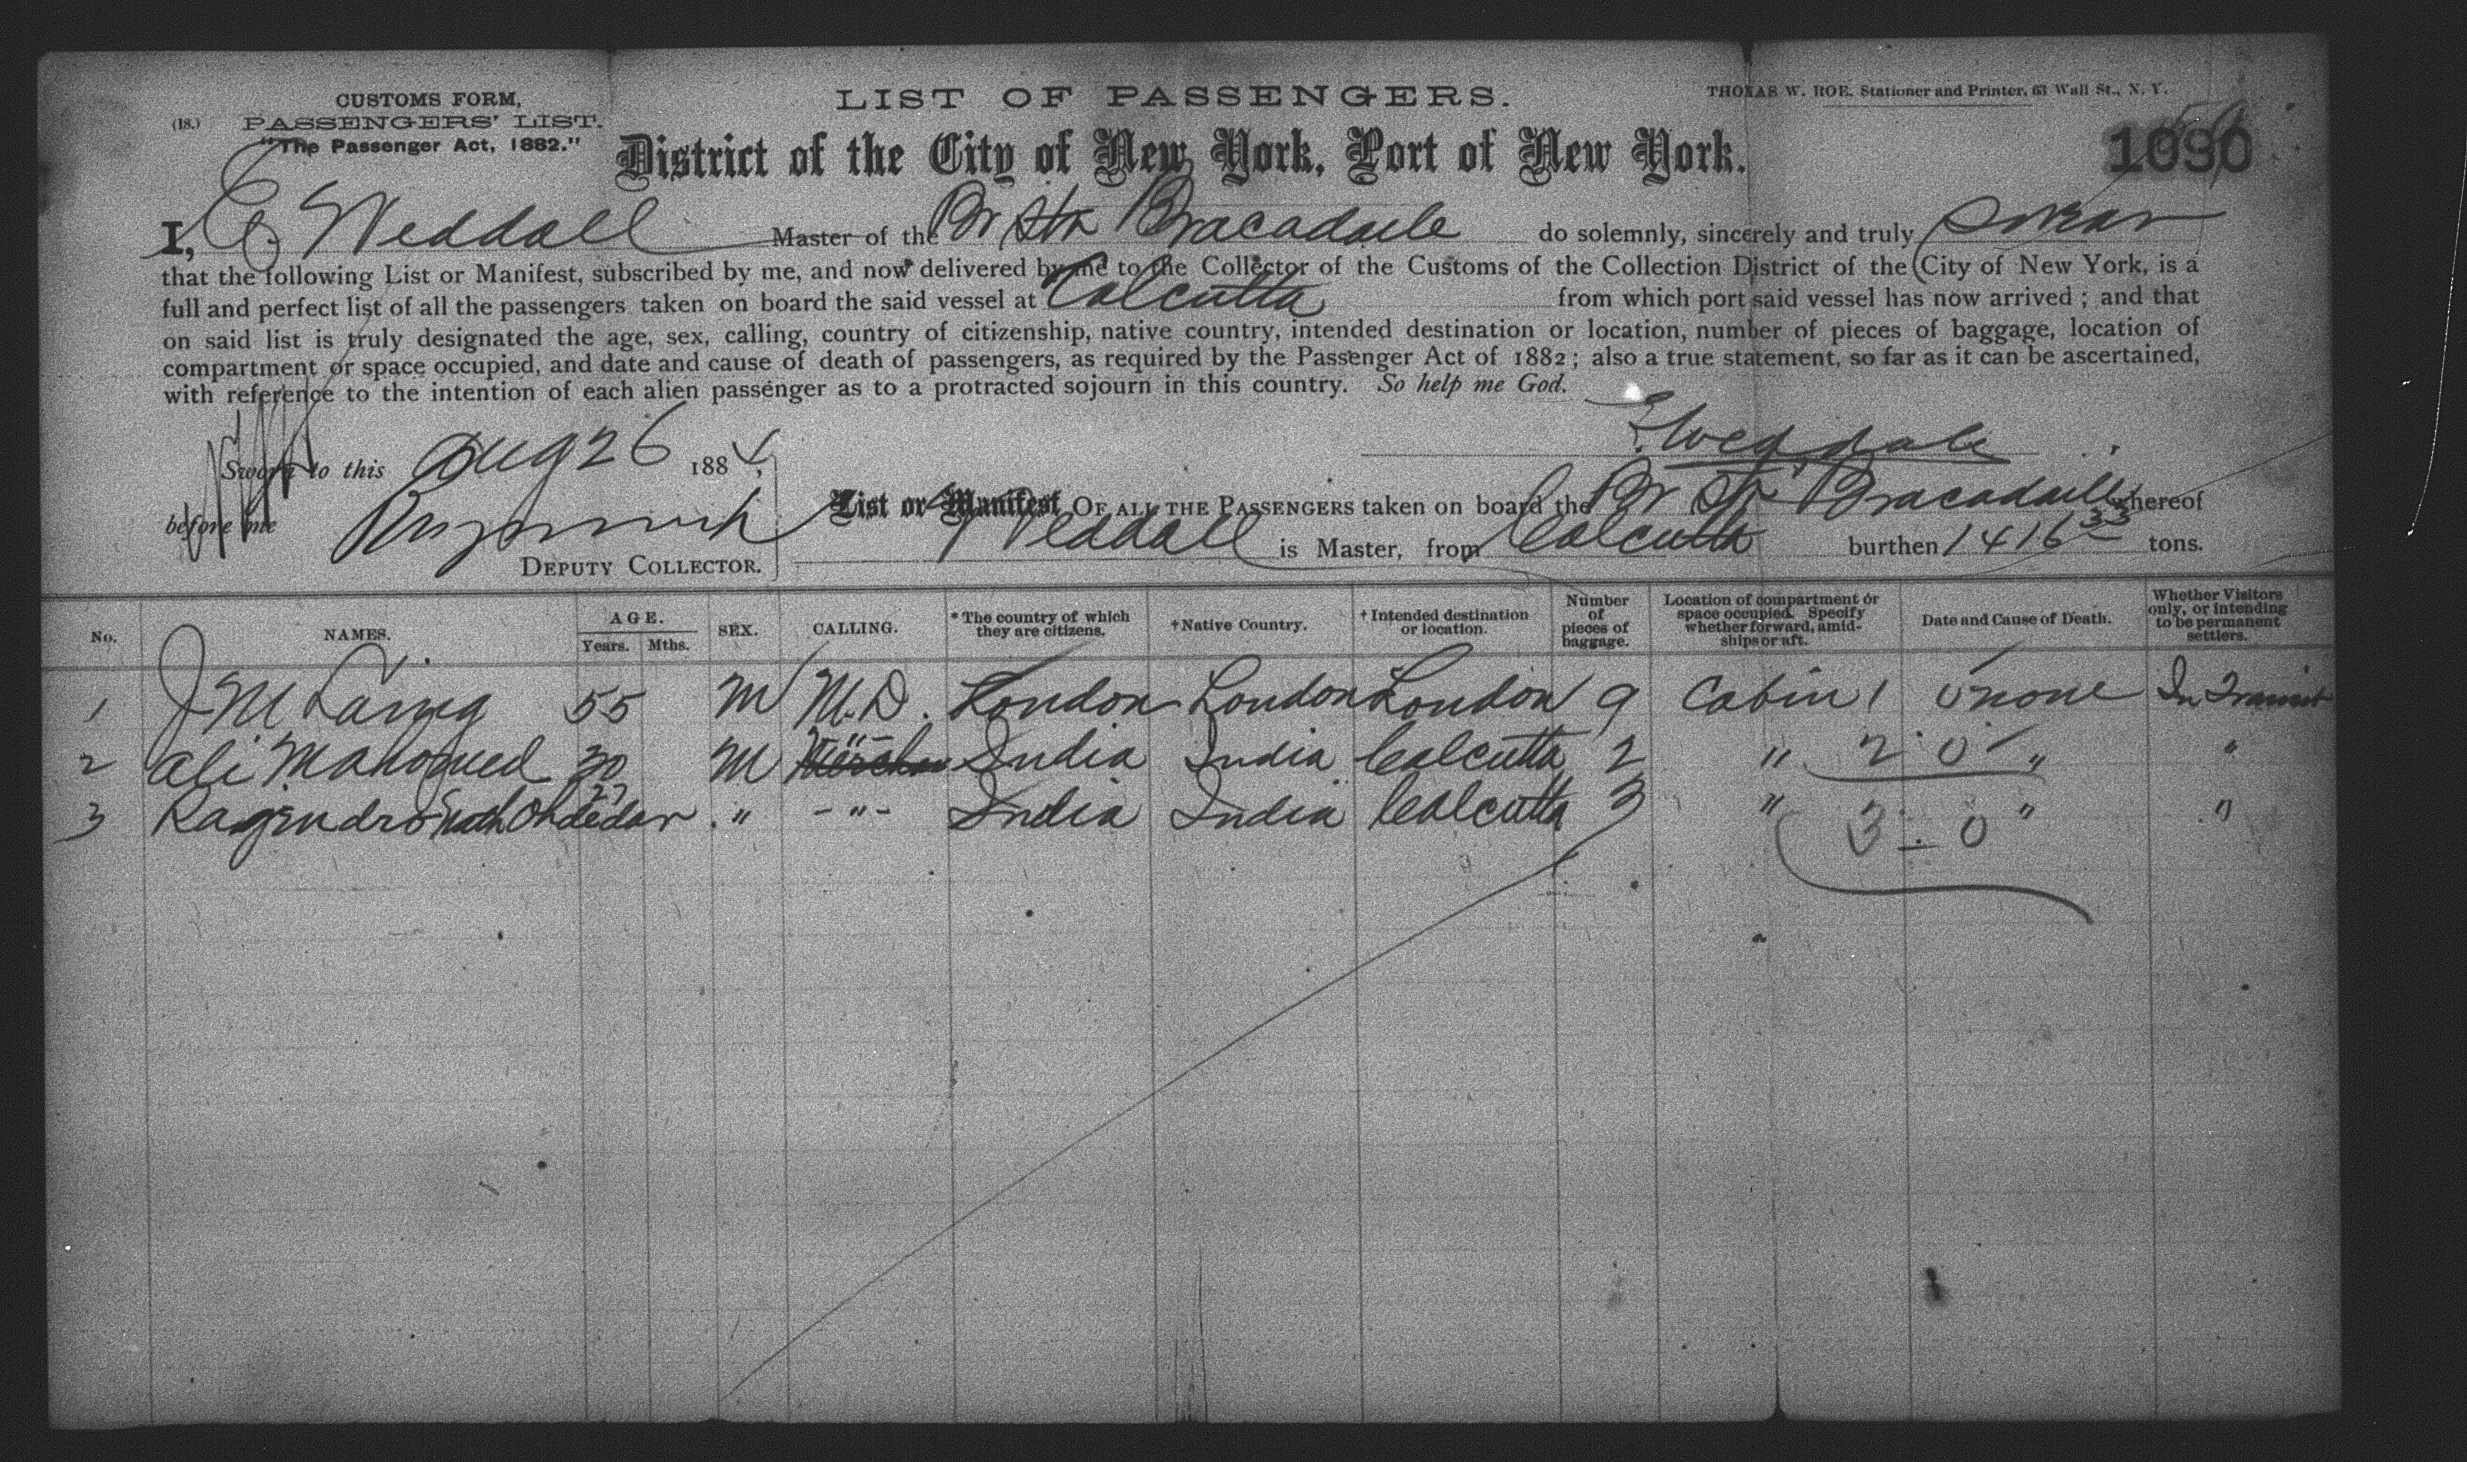 CUSTOMS FORM,
(18.) PASSENGERS' LIST.
"The Passenger Act, 1882."
LIST OF PASSENGERS.
THOMAS W. ROE, Stationer and Printer, 63 Wall St., N. Y.
District of the City of New York, Port of New York.
1090
I, E Weddall Master of the Br Str Bracadaile do solemnly, sincerely and truly swear
that the following List or Manifest, subscribed by me, and now delivered by me to the Collector of the Customs of the Collection District of the City of New York, is a
full and perfect list of all the passengers taken on board the said vessel at Calcutta from which port said vessel has now arrived ; and that
on said list is truly designated the age, sex, calling, country of citizenship, native country, intended destination or location, number of pieces of baggage, location of
compartment or space occupied, and date and cause of death of passengers, as required by the Passenger Act of 1882 ; also a true statement, so far as it can be ascertained,
with reference to the intention of each alien passenger as to a protracted sojourn in this country. So help me God.
E Weddall
Sworn to this Aug 26 1884,
before me
DEPUTY COLLECTOR.
List or Manifest OF ALL THE PASSENGERS taken on board the Br Str Bracadaile whereof
Weddall is Master, from Calcutta burthen 1416 33 tons.
No. NAMES. AGE. Years. Mths. SEX. CALLING. * The country of which they are citizens. † Native Country. † Intended destination or location. Number of pieces of baggage. Location of compartment or space occupied. Specify whether forward, amidships or aft. Date and Cause of Death. Whether Visitors only, or intending to be permanent settlers.
1 J M Laing 55 M M.D. London London London 9 Cabin 1 0 none In Transit
2 Ali Mahomed 30 M -"- India India Calcutta 2 " 2 0 " "
3 27 " -"- India India Calcutta 3 " " "
3 - 0